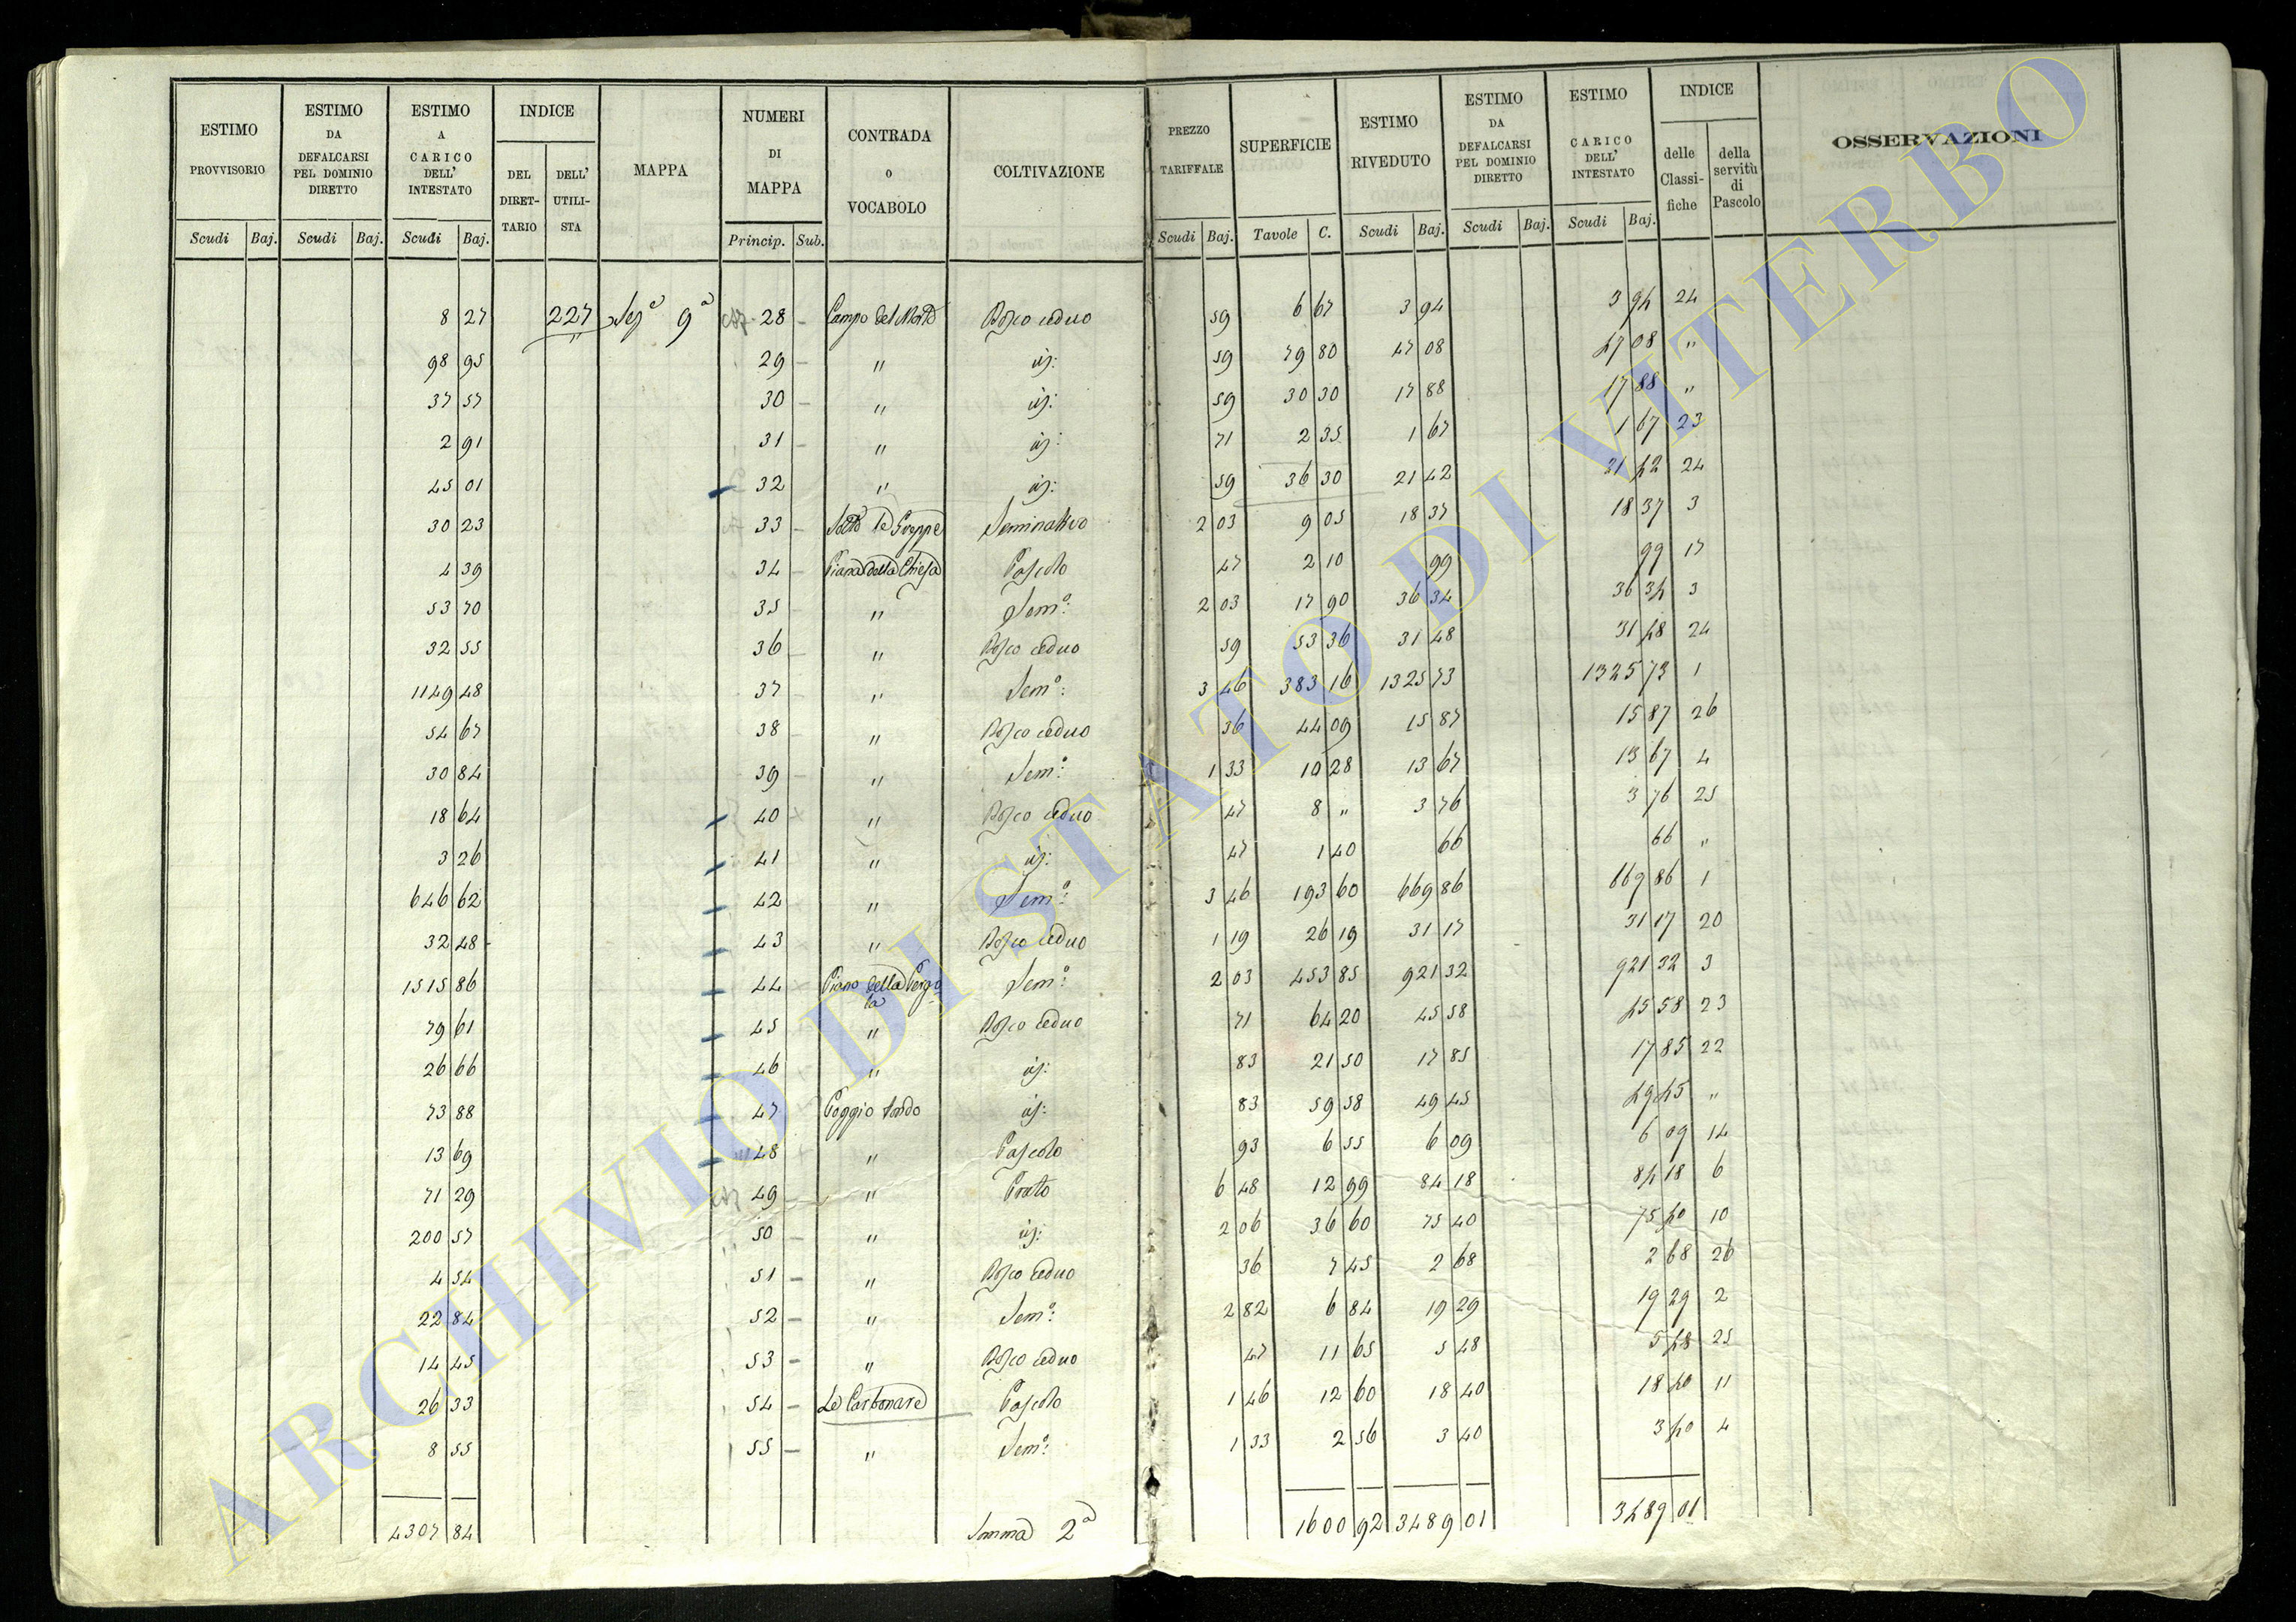 ESTIMO PROVVISORIO | ESTIMO DA DEFALCARSI PEL DOMINIO DIRETTO | ESTIMO A CARICO DELL' INTESTATO | INDICE DEL DIRETTARIO | DELL' UTILISTA | MAPPA | NUMERI DI MAPPA | CONTRADA O VOCABOLO | COLTIVAZIONE | PREZZO TARIFFALE | SUPERFICIE | ESTIMO RIVEDUTO | ESTIMO DA DEFALCARSI PEL DOMINIO DIRETTO | ESTIMO CARICO DELL' INTESTATO | INDICE delle Classifiche | della servitù di Pascolo | OSSERVAZIONI
Scudi Baj. | Scudi Baj. | Scudi Baj. | Princip. Sub. | Scudi Baj. | Tavole C. | Scudi Baj. | Scudi Baj. | Scudi Baj.
8 27 227 Sez.e 9a 28 – Campo del Morto Bosco ceduo 59 6 67 3 94 3 94 24
98 95 29 – " id: 59 79 80 47 08 47 08 "
37 57 30 – " id: 59 30 30 17 88 17 88 "
2 91 31 – " id: 71 2 35 1 67 1 67 23
45 01 32 " id: 59 36 30 21 42 21 42 24
30 23 33 – Sotto le Greppe Seminativo 2 03 9 05 18 37 18 37 3
4 39 34 – Piana della Chiesa Pascolo 47 2 10 99 99 17
53 70 35 – " Sem.o: 2 03 17 90 36 34 36 34 3
32 55 36 – " Bosco ceduo 59 53 36 31 48 31 48 24
1149 48 37 – " Sem.o: 3 46 383 16 1325 73 1325 73 1
54 67 38 – " Bosco ceduo 36 44 09 15 87 15 87 26
30 84 39 – " Sem.o: 1 33 10 28 13 67 13 67 4
18 64 40 " Bosco ceduo 47 8 " 3 76 3 76 25
3 26 41 " id: 47 1 40 66 66 "
646 62 42 " Sem.o: 3 46 193 60 669 86 669 86 1
32 48 43 " Bosco ceduo 1 19 26 19 31 17 31 17 20
1515 86 44 Piano della Pergola Sem.o: 2 03 453 85 921 32 921 32 3
79 61 45 " Bosco ceduo 71 64 20 45 58 45 58 23
26 66 46 " id: 83 21 50 17 85 17 85 22
73 88 47 Poggio tondo id: 83 59 58 49 45 49 45 "
13 69 48 " Pascolo 93 6 55 6 09 6 09 14
71 29 49 " Prato 6 48 12 99 84 18 84 18 6
200 57 50 – " id: 2 06 36 60 75 40 75 40 10
4 54 51 – " Bosco ceduo 36 7 45 2 68 2 68 26
22 84 52 – " Sem.o: 2 82 6 84 19 29 19 29 2
14 45 53 – " Bosco ceduo 47 11 65 5 48 5 48 25
26 33 54 – Le Carbonare Pascolo 1 46 12 60 18 40 18 40 11
8 55 55 – " Sem.o: 1 33 2 56 3 40 3 40 4
4307 84 Somma 2a 1600 92 3489 01 3489 01
ARCHIVIO DI STATO DI VITERBO